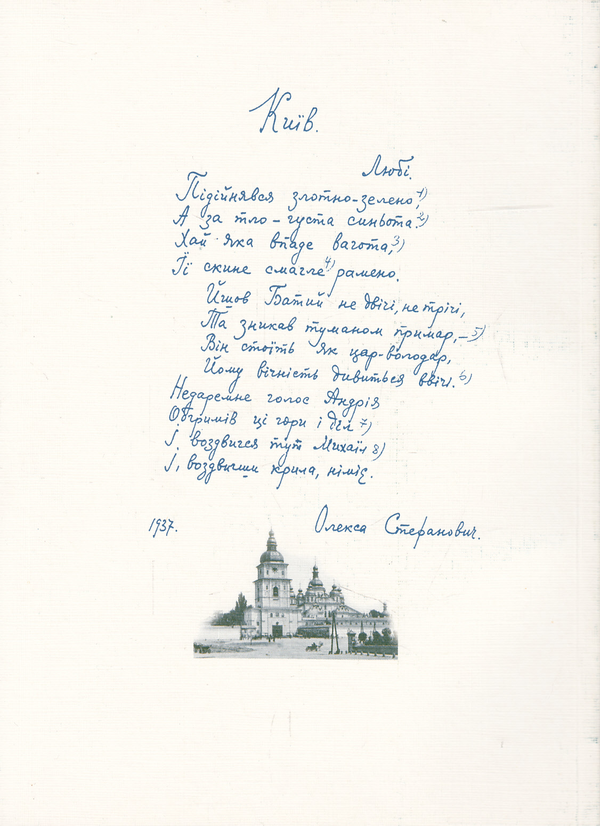 Київ.
Любі.
Підіймявся злотно-зелено,1)
А за тло – густа синьота.2)
Хай яка впаде вагота,3)
Її скине смагле4) рамено.
Йшов Батий не двічі, не тричі,
Та зникав туманом примар, –5)
Він стоїть як цар-володар,
Йому вічність дивиться ввічі.6)
Недаремне голос Андрія
Обгримів ці гори і діл7)
І, воздвигся тут Михаїл8)
І, воздвигши крила, німіє.
1937.
Олекса Стефанович.